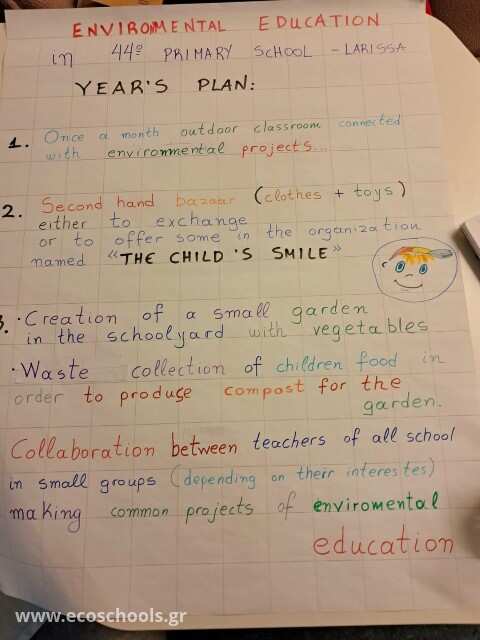 ENVIROMENTAL EDUCATION
in 44º PRIMARY SCHOOL - LARISSA
YEAR'S PLAN:
1. Once a month outdoor classroom connected
with environmental projects...
2. Second hand bazaar (clothes + toys)
either to exchange
or to offer some in the organization
named “THE CHILD'S SMILE”
3. · Creation of a small garden
in the schoolyard with vegetables
· Waste collection of children food in
order to produse compost for the
garden.
Collaboration between teachers of all school
in small groups (depending on their interestes)
making common projects of enviromental
education
www.ecoschools.gr